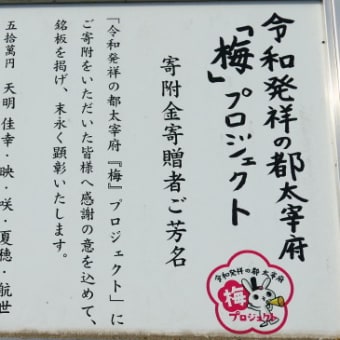 令和発祥の都太宰府
「梅」プロジェクト
寄附金寄贈者ご芳名
「令和発祥の都太宰府『梅』プロジェクト」に
ご寄附をいただいた皆様へ感謝の意を込めて、
銘板を掲げ、末永く顕彰いたします。
五拾萬円 天明 佳幸・映・咲・夏穂・航世
令和発祥の都 太宰府
梅
プロジェクト